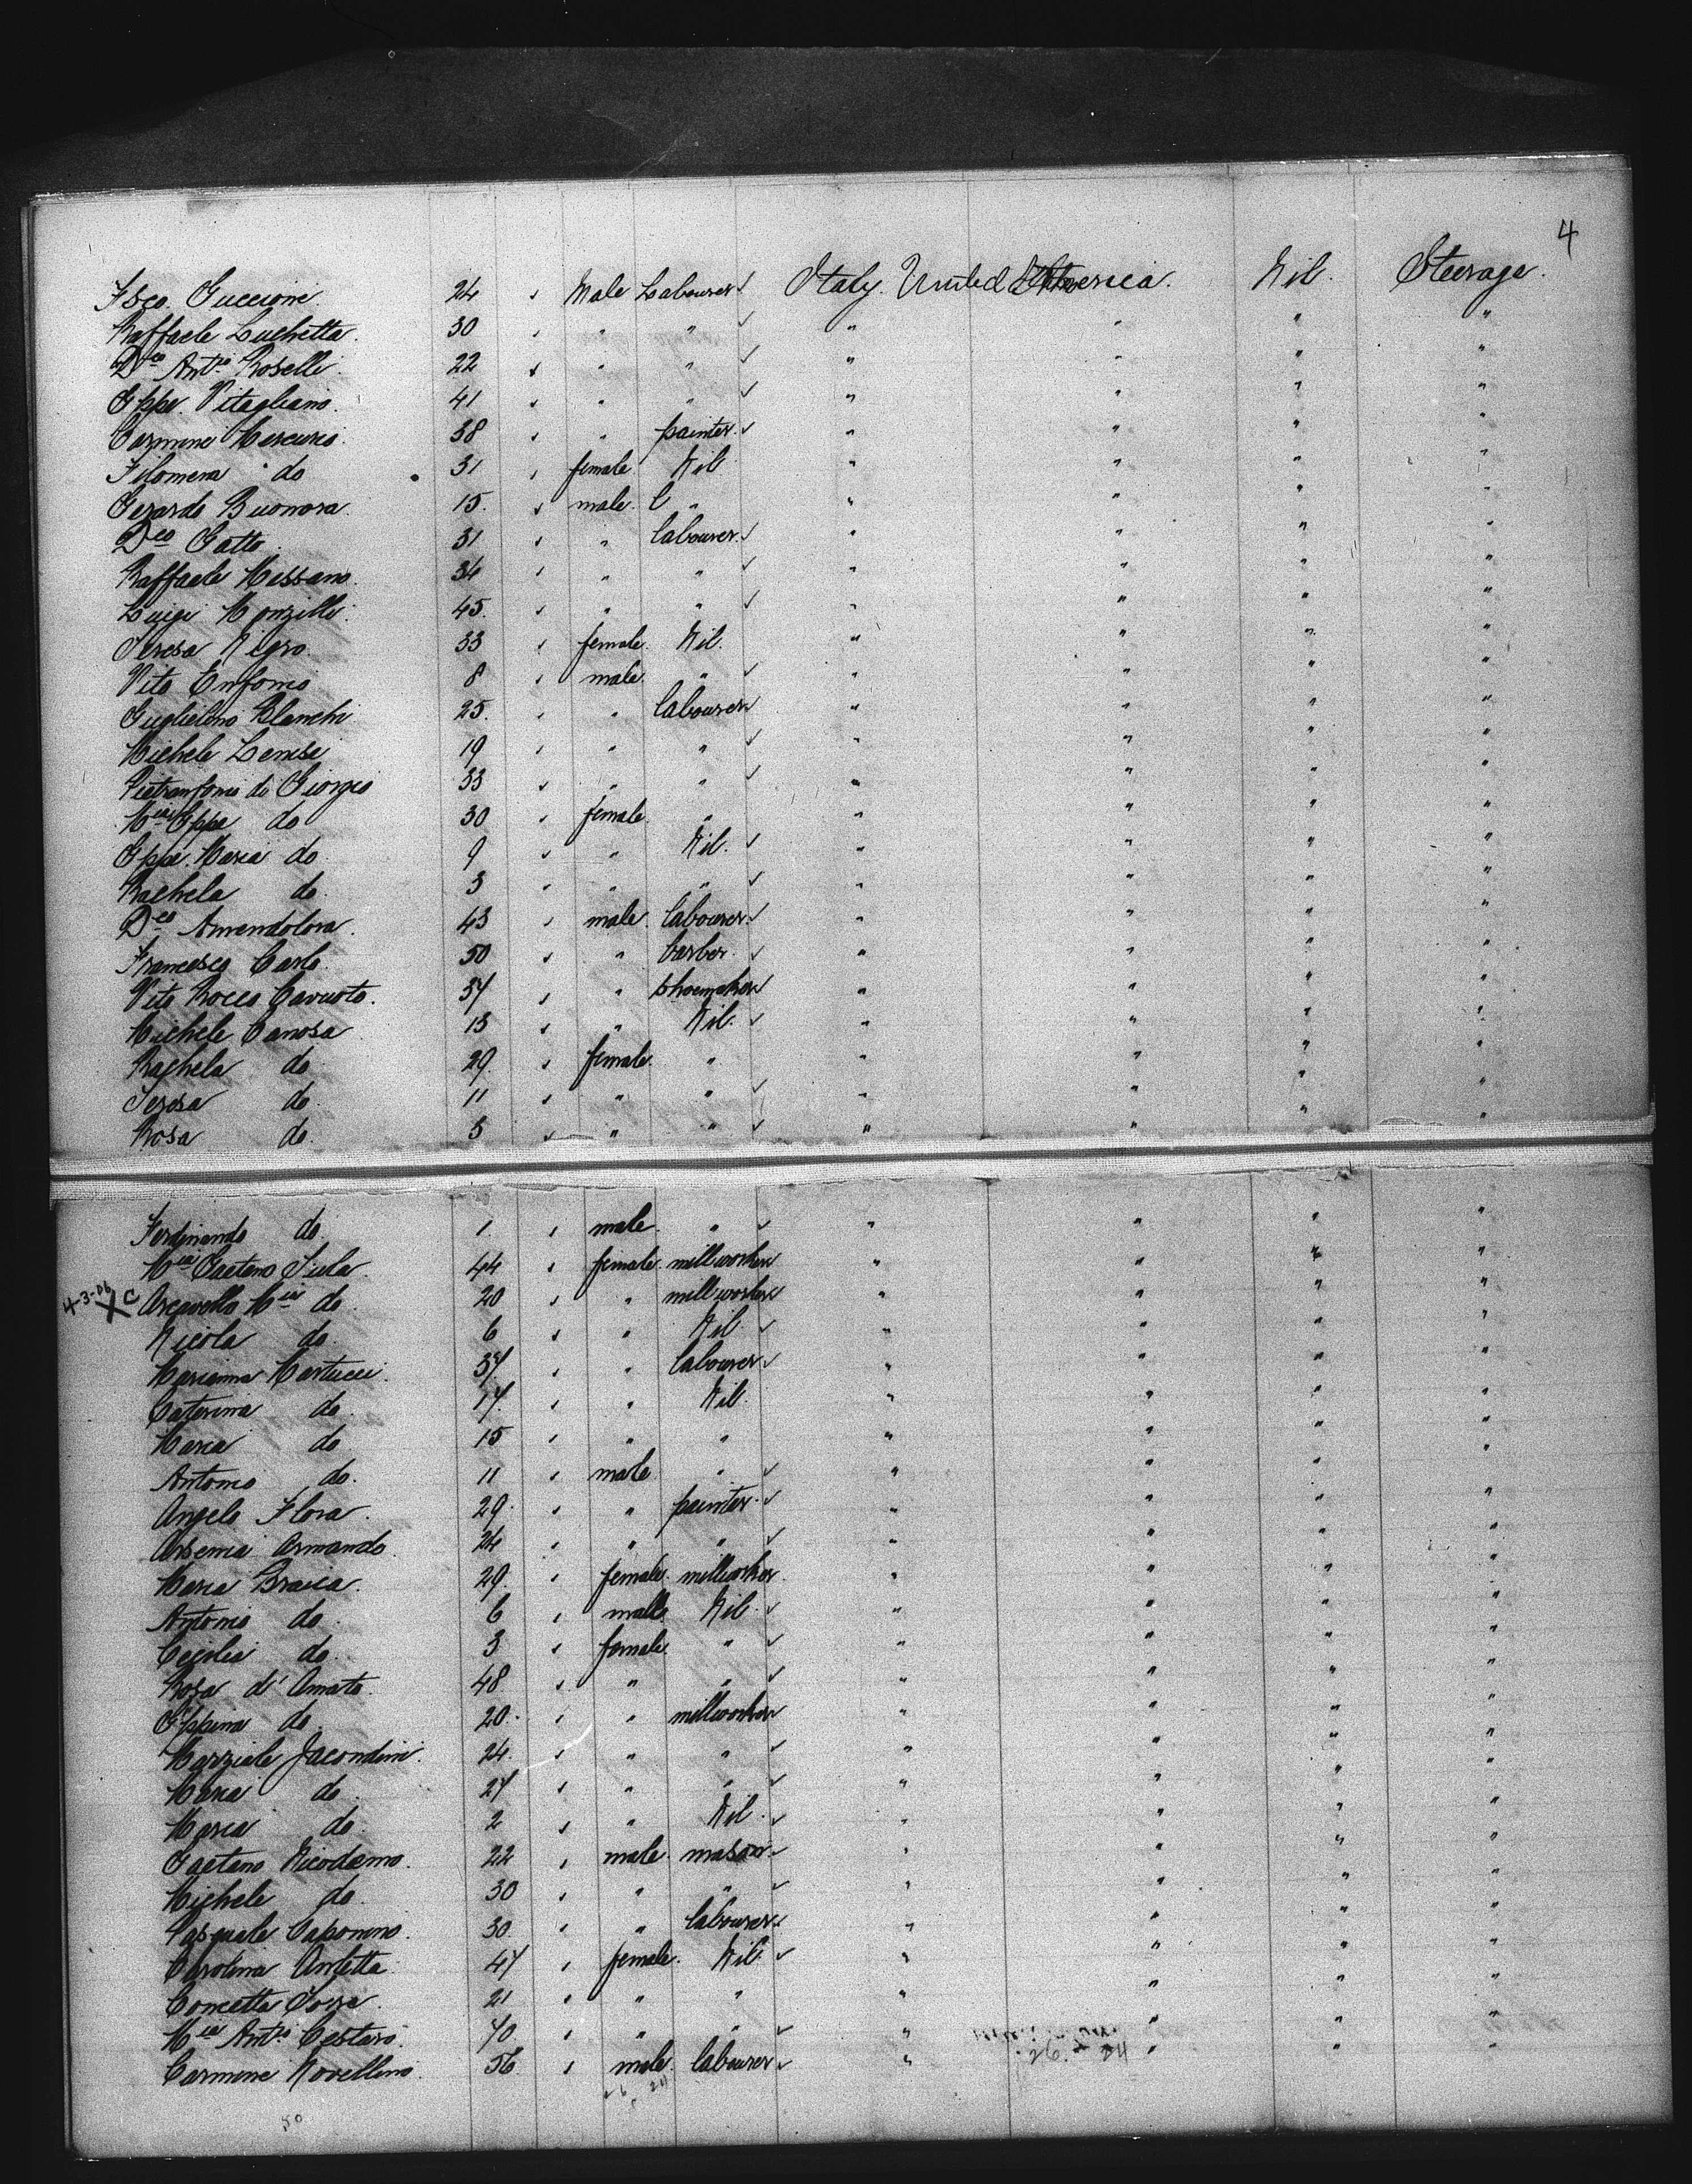 4
Fsco. Guccione 24 " Male Labourer Italy. United America. Nil. Steerage.
Raffaele Luchetta. 30 " " " " " " "
Dco Antio Roselli. 22 " " " " " " "
Gppe. Vitagliano. 41 " " " " " " "
Carmine Mercurio. 38 " " painter. " " " "
Filomena do 31 " female Nil " " " "
Gerardo Buonora. 15. " male. " " " " "
Dco Gatto. 31 " " labourer. " " " "
Raffaele Messano. 34 " " " " " " "
Luigi Monzilli. 45. " " " " " " "
Teresa Nigro. 33 " female. Nil. " " " "
Vito 8 " male. " " " " "
Guglielmo Blanchi 25. " " labourer " " " "
Michele Lense 19 " " " " " " "
di Giorgio 33 " " " " " " "
Mia Gppa do 30 " female. " " " " "
Gppa. Maria do. 9 " " Nil. " " " "
Rachela do. 3 " " " " " " "
Dco Amendolora. 43 " male. labourer. " " " "
Francesco Carlo. 50 " " barber. " " " "
Vito Rocco Cavuoto. 37 " " shoemaker " " " "
Michele Canosa 13 " " Nil. " " " "
Rachela do 29. " female. " " " " "
Teresa do. 11 " " " " " " "
Rosa do. 5 " " " " " " "
Ferdinando do. 1. " male. " " " " "
Mia Gaetano 44 " female. millworker " " " "
4-3-06 X C Mia do. 20 " " millworker " " " "
Nicola do. 6 " " Nil. " " " "
Marianna Martucci. 37. " " labourer. " " " "
Caterina do. 17. " " Nil. " " " "
Maria do 15 " " " " " " "
Antonio do. 11 " male " " " " "
Angelo Flora. 29. " " painter. " " " "
Arsenia Armando. 24 " " " " " " "
Maria Braica. 29. " female. millworker " " " "
Antonio do. 6 " male. Nil. " " " "
Cecilia do. 3 " female. " " " " "
Rosa d'Amato. 48 " " " " " " "
Gppina do. 20. " " millworker " " " "
Marziale Jacondini. 24. " " " " " " "
Maria do. 27 " " " " " " "
Maria do. 2 " " Nil. " " " "
Gaetano Nicodemo. 22 " male. mason. " " " "
Michele do. 30 " " " " " " "
Pasquale Caponino. 30. " " labourer. " " " "
Carolina Auletta. 47 " female. Nil. " " " "
Concetta 21 " " " " " " "
Mia Antia Cestaro. 70. " " " " " " "
26. 24
Carmine Novellino. 56. " male. labourer " " " "
26 24
50